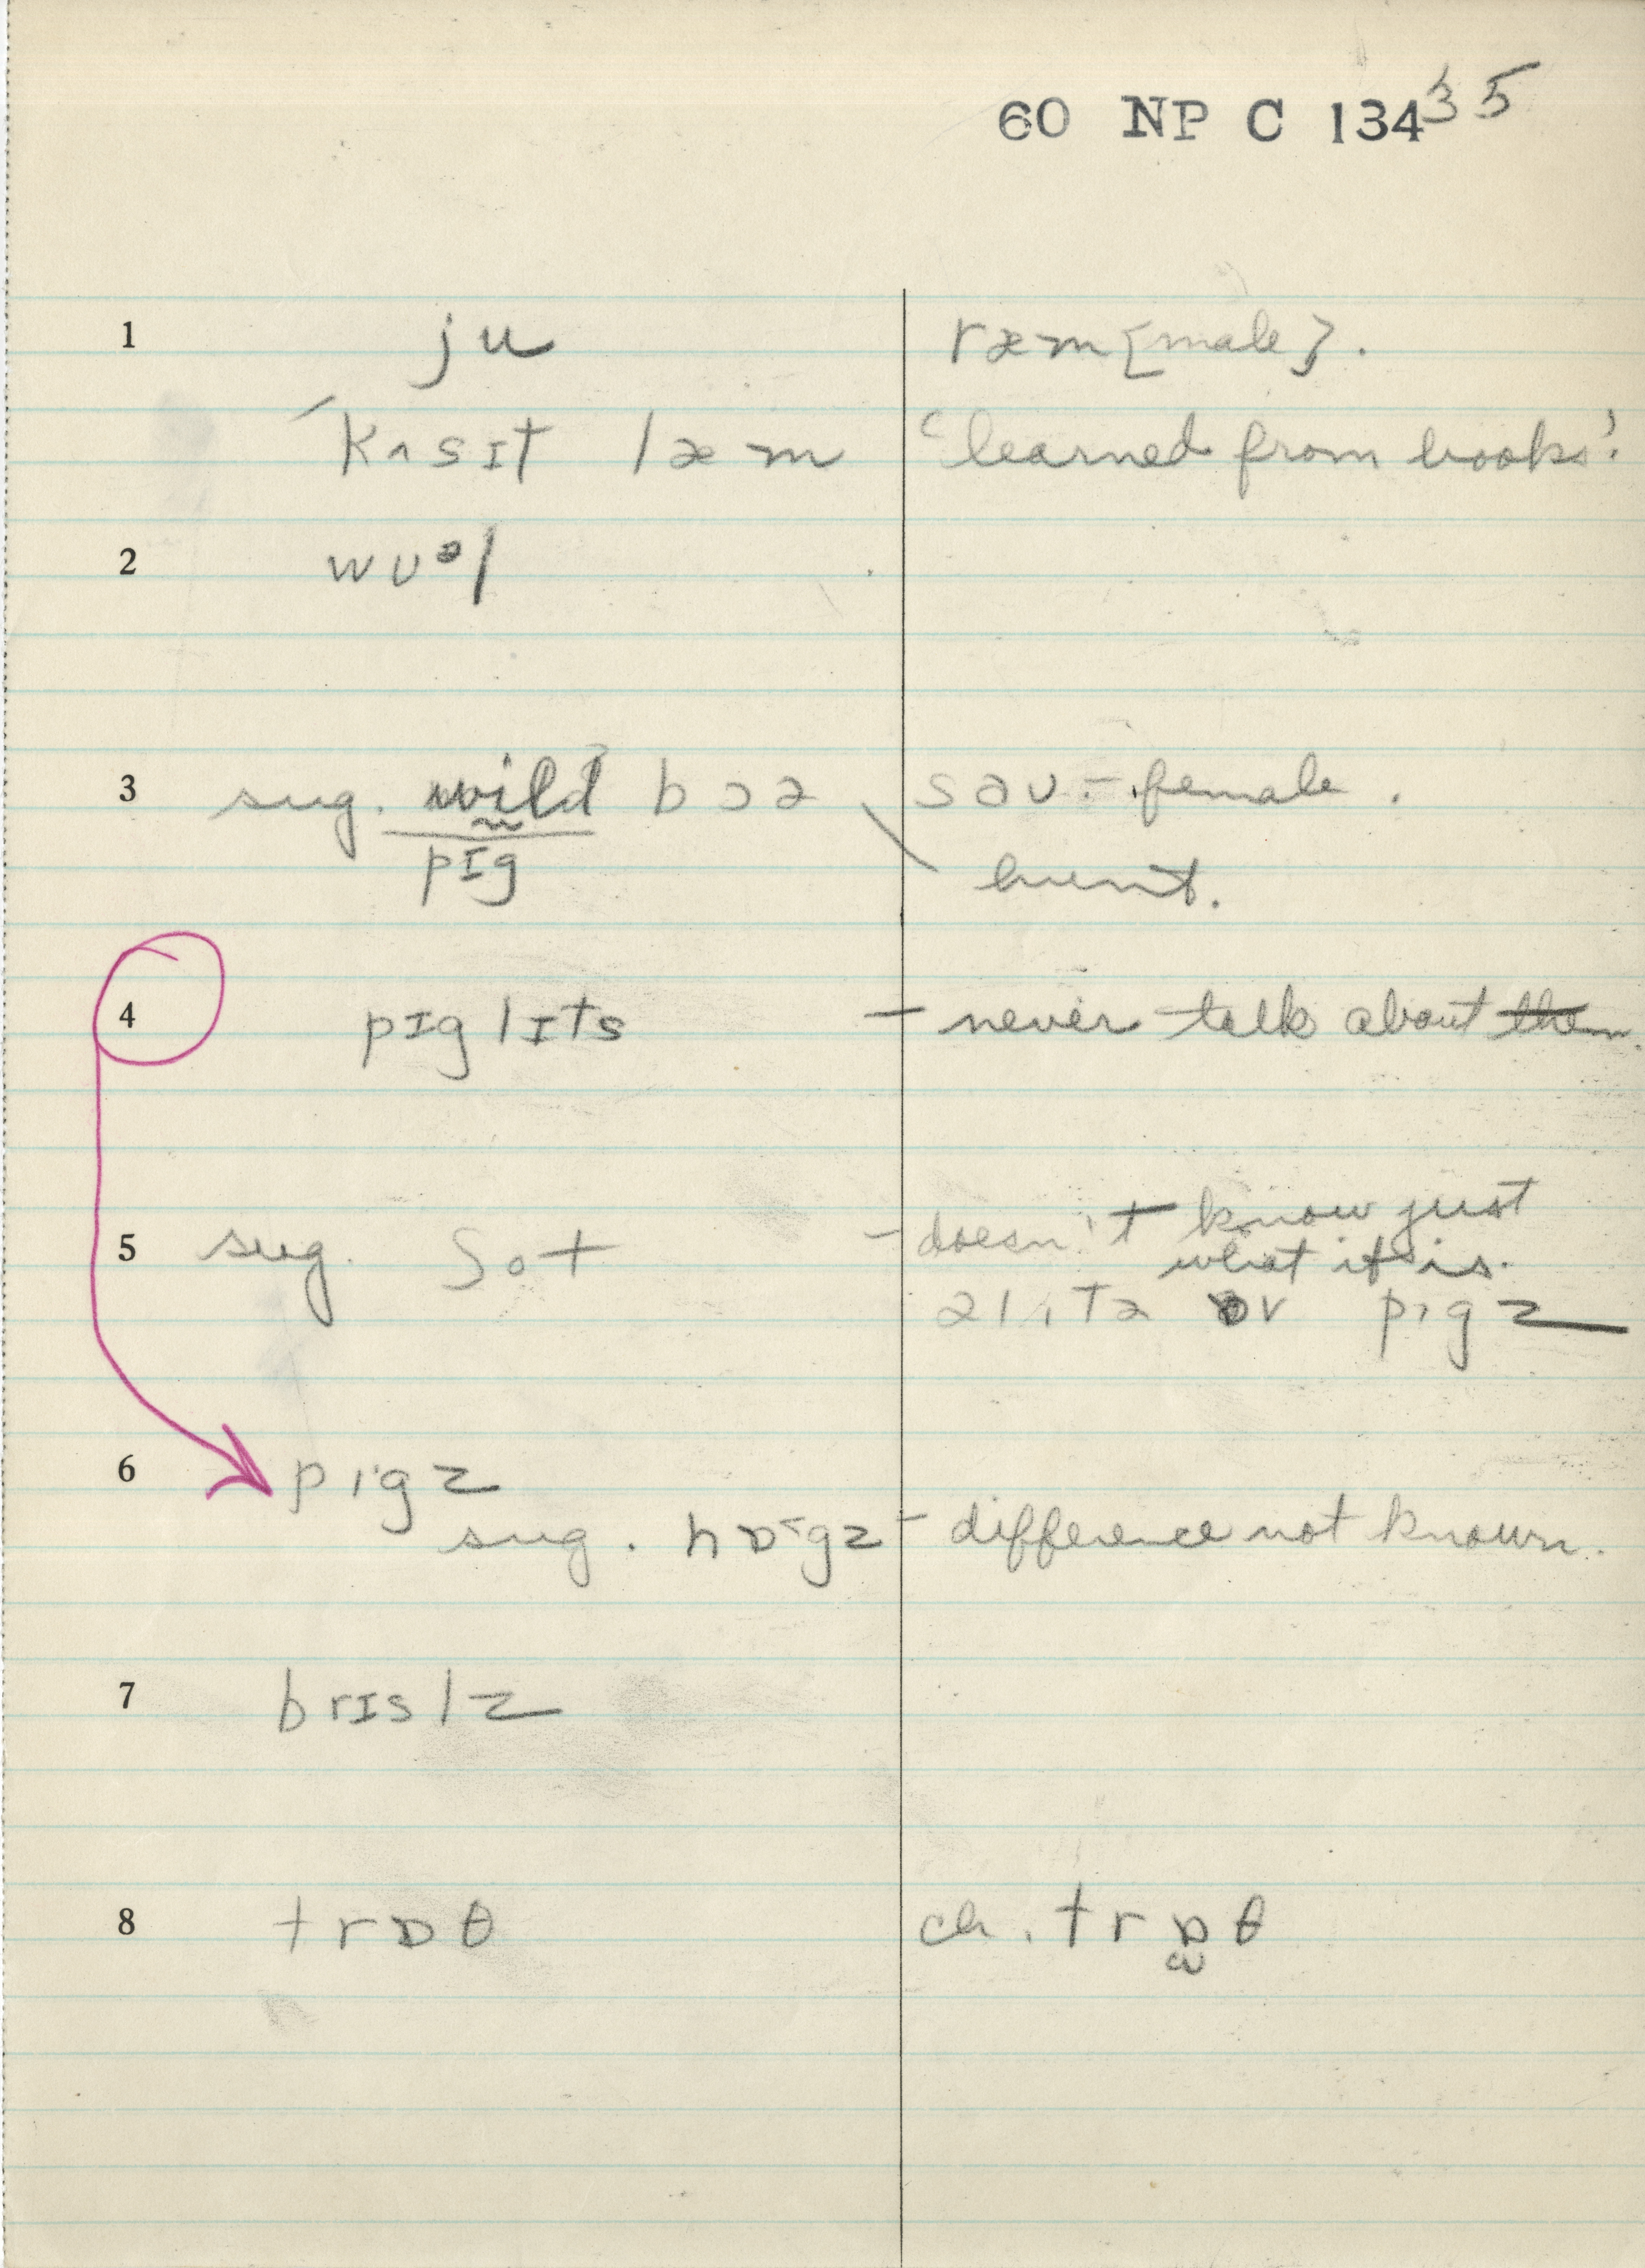 60 NP C 134 35
1 ju ræm {male}.
ˈkʌsɪt læm 'learned from books'.
2 wʊᵊl
3 sug. wild bɔə səʊ - female.
pɪg hunt.
4 pɪglɪts - never talk about them.
5 sug. ʃot - doesn't know just
what it is.
əlɪtə ɒv pɪgz
6 pɪgz
sug. hɒˇgz - difference not known.
7 brɪslz
8 trɒθ ch. trɒθ